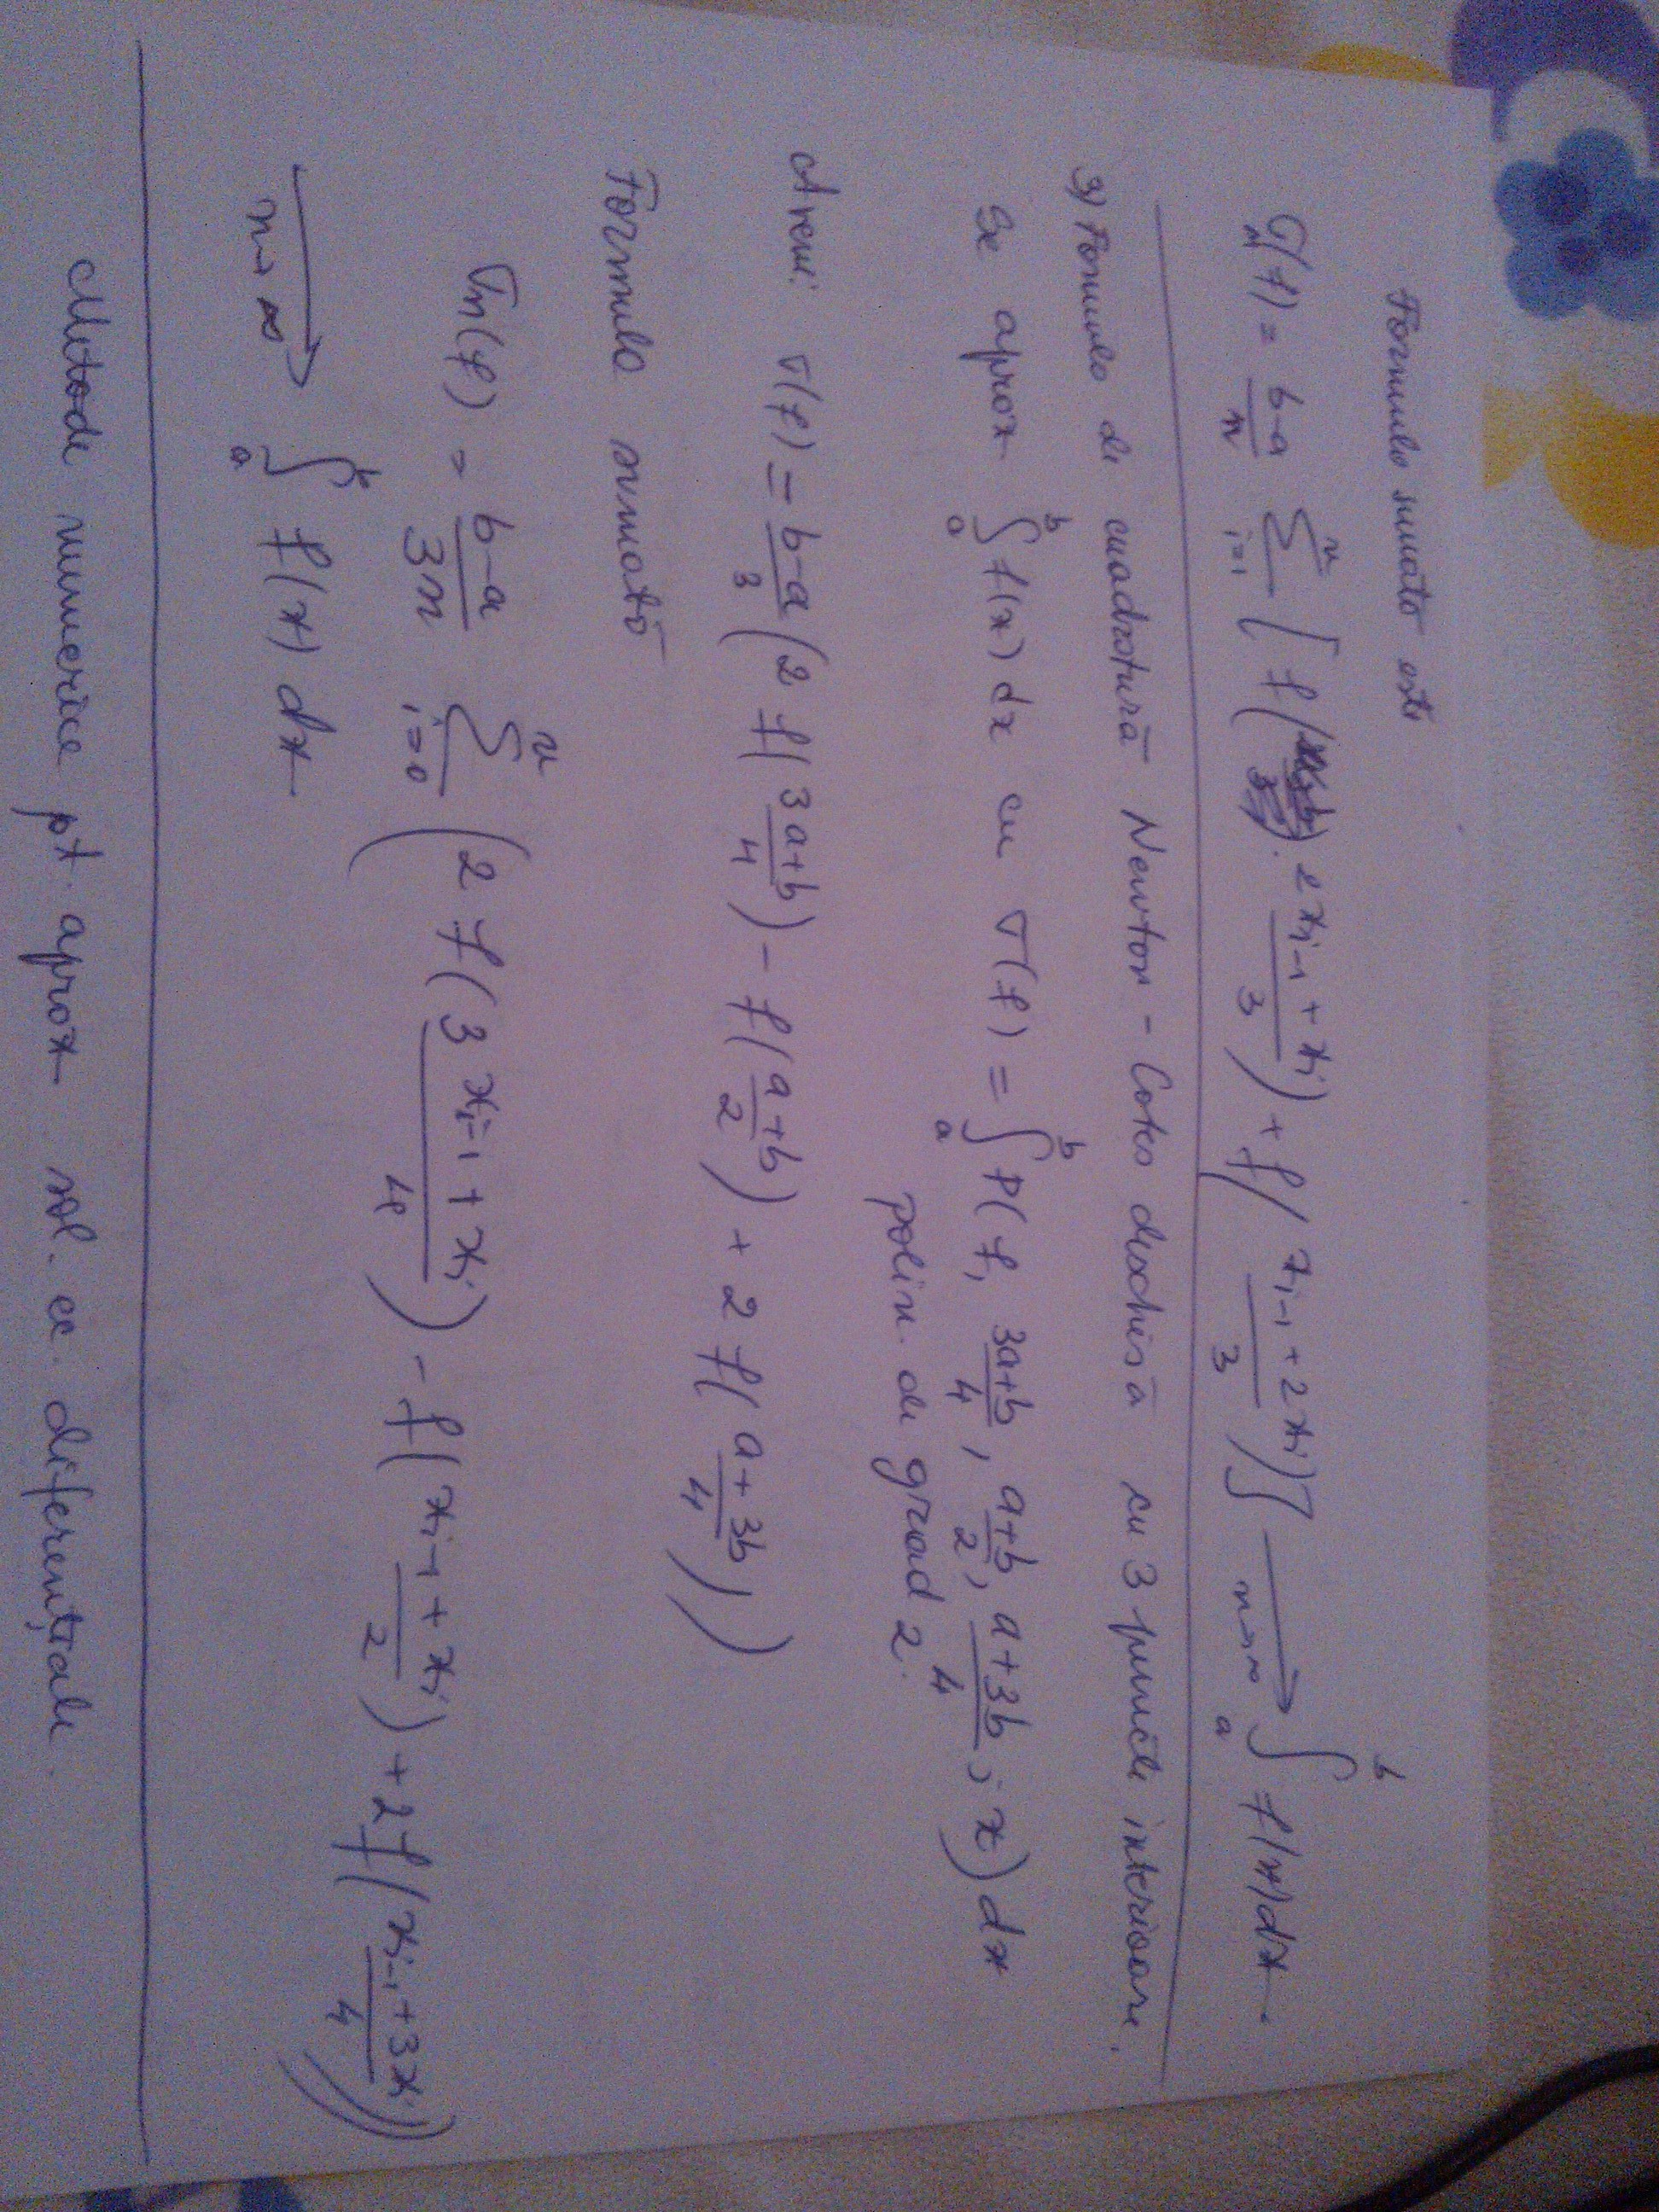 Formula sumată este
σₙ(f) = b-a/n Σ_{i=1}^{n} [f( 2x_{i-1} + x_i / 3) + f( x_{i-1} + 2x_i / 3)] →_{n→∞} ∫_a^b f(x)dx.
3) Formula de cuadratură Newton - Cotes deschisă cu 3 puncte interioare.
Se aprox ∫_a^b f(x)dx cu σ(f) = ∫_a^b P(f, 3a+b/4, a+b/2, a+3b/4; x)dx
polin. de grad 2.
Avem: σ(f) = b-a/3 (2 f( 3a+b/4) - f( a+b/2) + 2 f( a+3b/4))
Formula sumată
σₙ(f) = b-a/3n Σ_{i=0}^{n} (2 f( 3x_{i-1} + x_i / 4) - f( x_{i-1} + x_i / 2) + 2f( x_{i-1} + 3x_i / 4))
→_{n→∞} ∫_a^b f(x) dx
Metode numerice pt. aprox sol. ec. diferențiale.